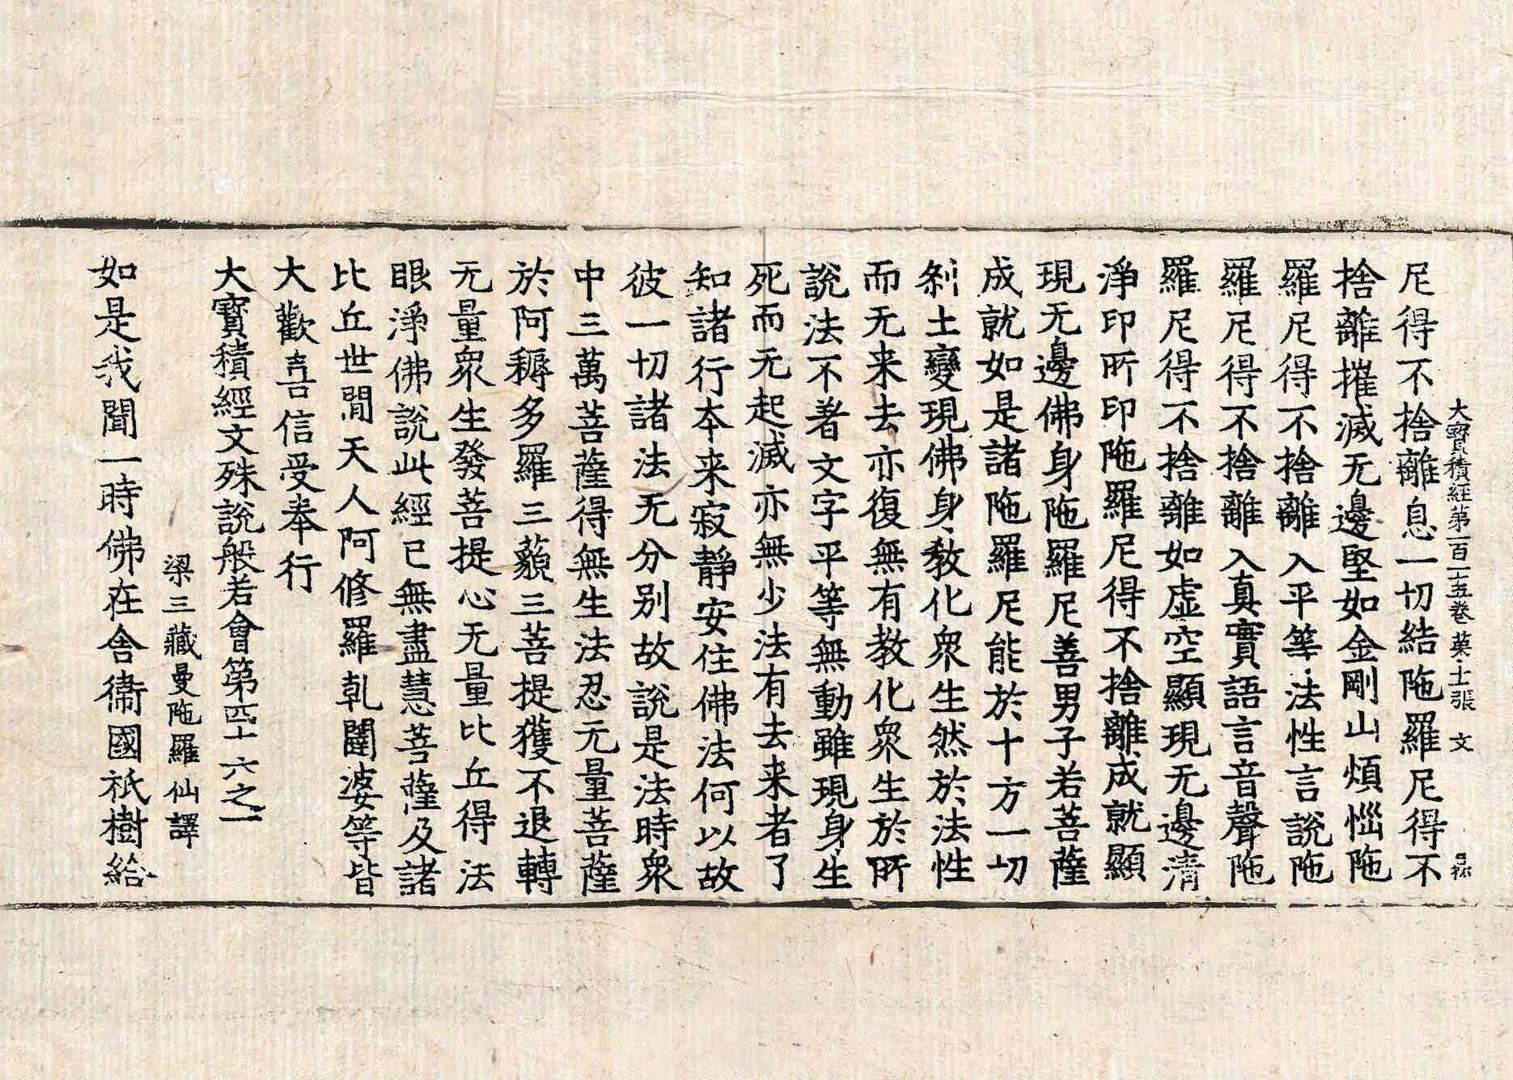 大寶積經第一百一十五卷 第十張 文
尼得不捨離息一切結陁羅尼得不
捨離摧滅无邊堅如金剛山煩惱陁
羅尼得不捨離入平等法性言說陁
羅尼得不捨離入真實語言音聲陁
羅尼得不捨離如虛空顯現无邊清
淨印所印陁羅尼得不捨離成就顯
現无邊佛身陁羅尼善男子若菩薩
成就如是諸陁羅尼能於十方一切
刹土變現佛身教化衆生然於法性
而无来去亦復無有教化衆生於所
說法不著文字平等無動雖現身生
死而无起滅亦無少法有去来者了
知諸行本来寂靜安住佛法何以故
彼一切諸法无分別故說是法時衆
中三萬菩薩得無生法忍无量菩薩
於阿耨多羅三藐三菩提獲不退轉
无量衆生發菩提心无量比丘得法
眼淨佛說此經已無盡慧菩薩及諸
比丘世閒天人阿修羅乹闥婆等皆
大歡喜信受奉行
大寶積經文殊說般若會第四十六之一
梁三藏曼陁羅仙譯
如是我聞一時佛在舍衛國祇樹給